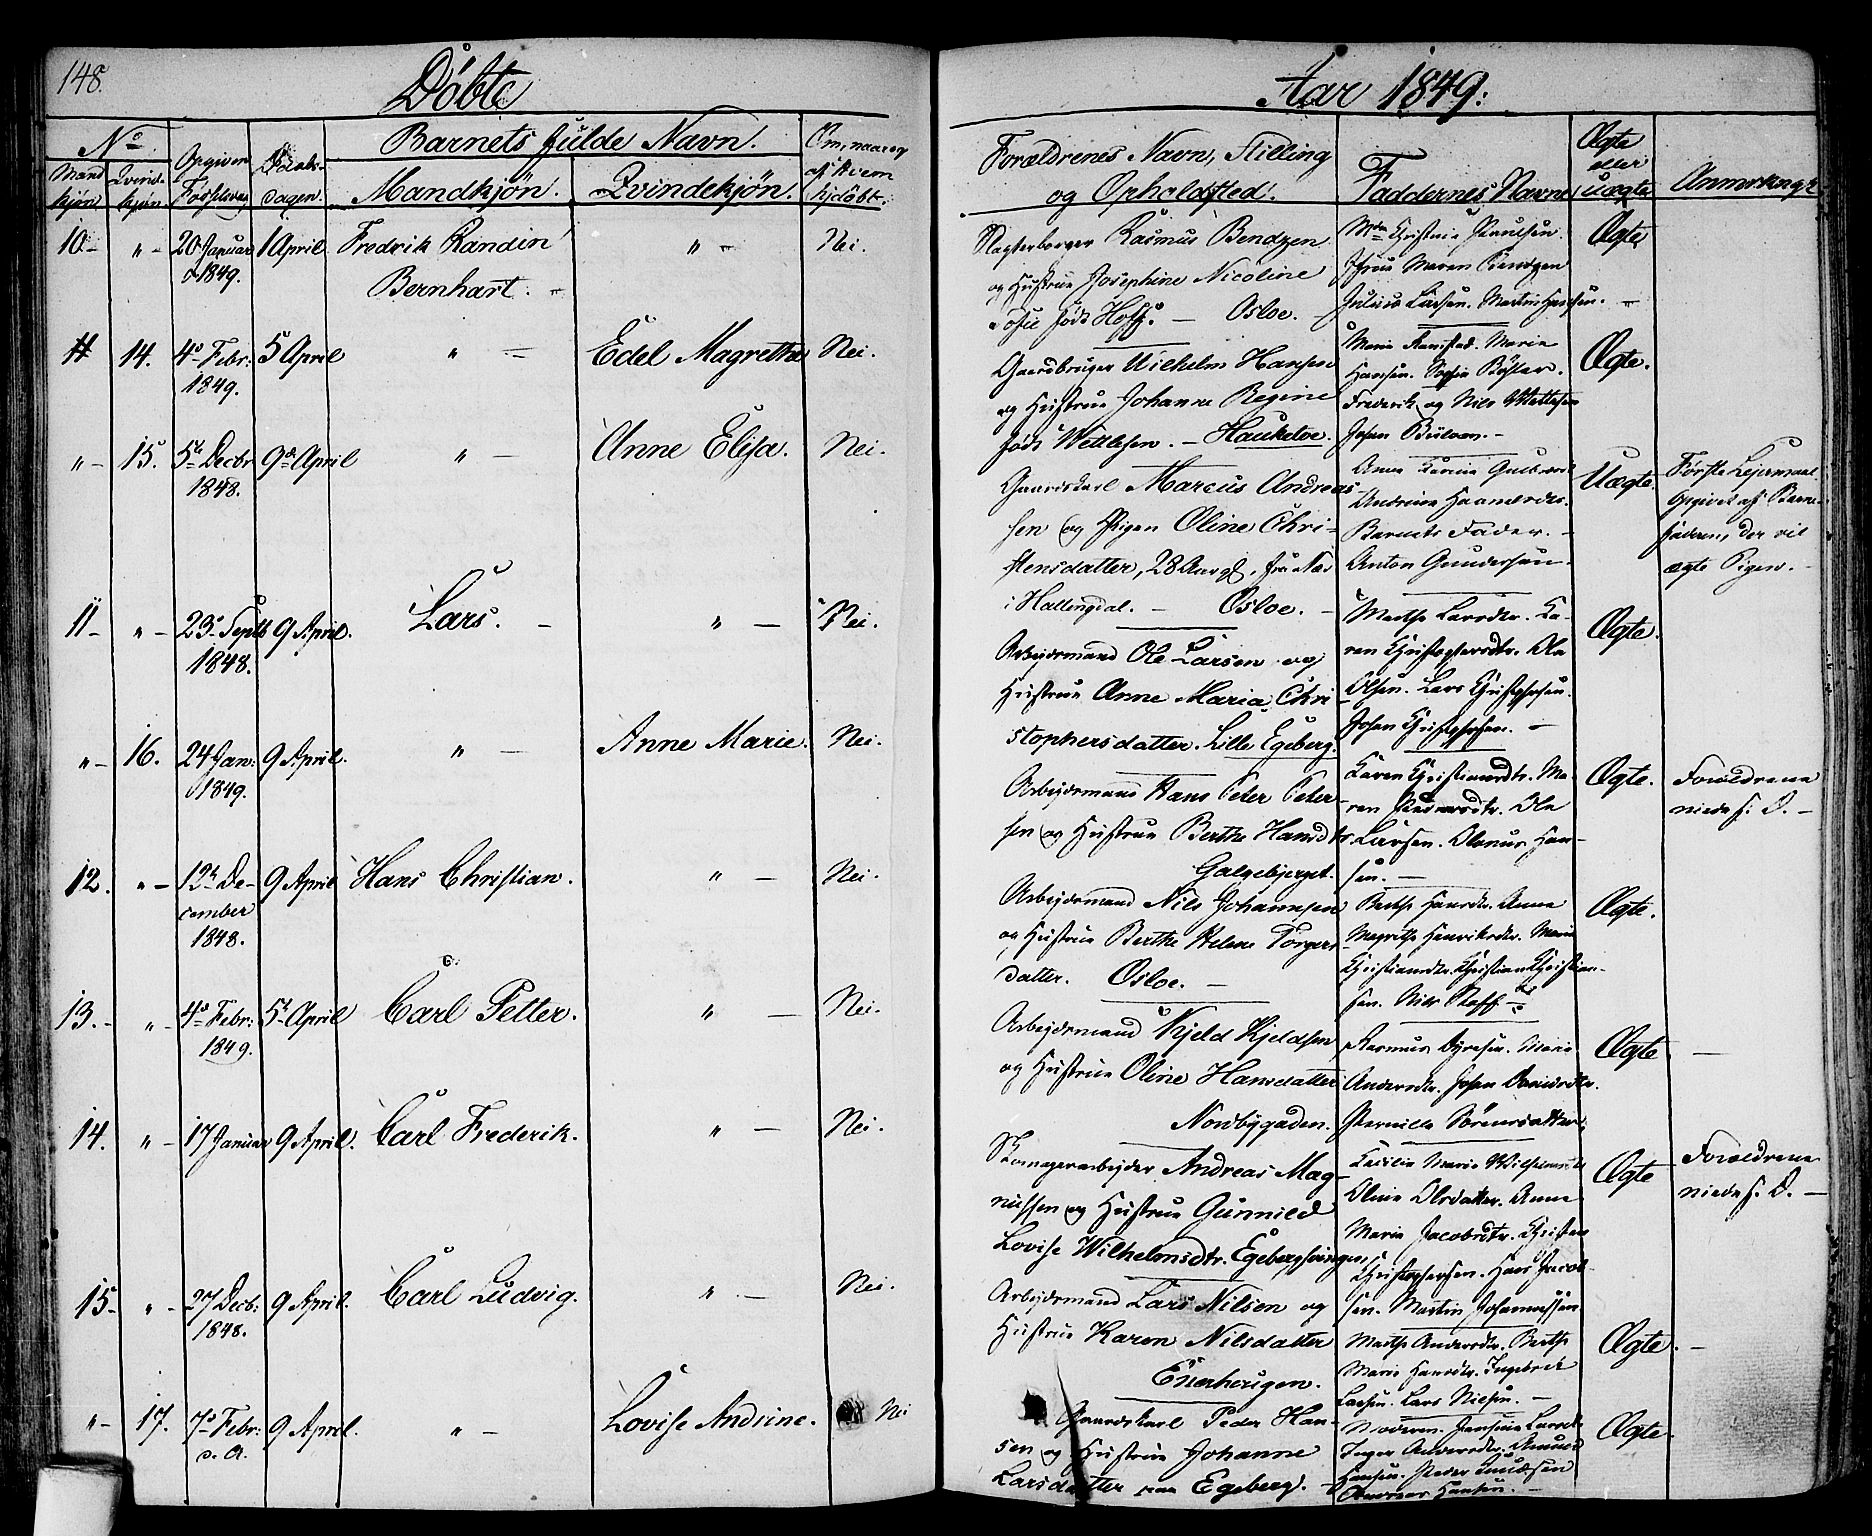 148.
Döbte
Aar 1849.
No
Mand
kjön
Qvinde
kjön
Opgiven
Födselsdag
Daabs-
dagen.
Barnets fulde Navn.
Mandkjön.
Qvindekjön.
Om, naar og
af hvem
hjdöbt.
Forældrenes Navn, Stilling
og Opholdssted.
Faddernes Navne
Ægte
eller
Uægte
Anmærkngr
10 - " - 20 Januar 1 April Fredrik Randin " - Nei.
1849.
Bernhart. -
Slagterborger Rasmus Bendzen
og Hustrue Josephine Nicoline
Sofie født Hoff. - Osloe. -
Christine Paulsen.
Maren Bendzen
Julius Larsen. Martin Hansen. -
Ægte
14. 4de Febr: 5 April " - Edel Magrethe Nei.
1849.
Gaardbruger Wilhelm Hansen
og Hustrue Johanne Regine
født Wettlesen. - Hauketoe.
Maria Ramstad. Maria
Hansen. Sofie
Frederik og Nils Wettlesen
Johan Bülow. -
Ægte.
" - 15. 5te Decbr 9de April " - Anne Elisa. Nei.
1848.
Gaardskarl Marcus Andreas-
sen og Pigen Oline Chri-
stensdatter, 28 Aar gl, fra Næs
i Hallingdal. - Osloe. -
Anne Karine
Andrine
Barnets Fader. -
Anton Gundersen.
Uægte.
Første Lejermaal
opgivet af Barne-
faderen, der vil
ægte Pigen. -
11 - " - 23de Septb 9 April. Lars. - " - Nei.
1848.
Arbejdsmand Ole Larsen og
Hustrue Anne Maria Chri
stophersdatter. Lille Egeberg.
Marthe Larsdtr. Ka-
ren Christophersdtr. Ole
Olsen. Lars Christophersen.
Johan Christophersen. -
Ægte.
" - 16. 24 Jan: 9 April. " - Anne Marie. Nei.
1849.
Arbejdsmand Hans Peter Peter-
sen og Hustrue Berthe Hansdtr
Galgebjerget.
Karen Christiansdtr. Ma-
ren Pedersdtr. Ole
Larsen. Olenus Han-
sen. -
Ægte.
Forældrene
niede s: D. -
12. " - 12te De- 9 April Hans Christian. " - Nei.
cember
1848.
Arbejdsmand Nils Johannesen
og Hustrue Berthe Helene Torgers
datter. Osloe. -
Berthe Hansdtr. Anne
Magrethe Henriksdtr. Maria
Christiansdtr. Christian Christian-
sen. Nils
Ægte.
13. - " - 4de Febr: 5te April Carl Petter. " - Nei.
1849.
Arbejdsmand Kjeld Kjeldsen
og Hustrue Oline Hansdatter
Nordbygaden.
Rasmus Marie
Andersdtr. Johan
Pernille Sörensdatter.
Ægte. -
14. " - 17 Januar 9 April. Carl Frederik. " - Nei.
Skomagerarbejder Andreas Mag-
nussen og Hustrue Gunnild
Lovise Wilhelmsdtr. Egebergsvingen,
Cecilie Marie Wilhelmsdtr
Oline Olsdatter. Anne
Marie Jacobsdtr. Christen
Christophersen. Hans Jacob-
sen. Martin Johannessen
Ægte
Forældrene
niede s: D. -
15 - " - 27 Decb: 9 April. Carl Ludvig. " - Nei.
1848.
Arbejdsmand Lars Nilsen og
Hustrue Karen Nilsdatter
Enerhougen.
Marthe Andersdtr. Berthe
Marie Hansdtr. Ingebret
Larsen. Lars Nielsen. -
Ægte. -
" - 17. 7de Febr: 9 April. " - Lovise Andrine. Nei
d. A.
Gaardskarl Peder Han-
sen og Hustrue Johanne
Larsdatter Egeberg. -
Moderen. Larsdtr
Inger Andersdtr.
Hansen. Peder Knudsen
Andreas Hansen. -
Ægte.